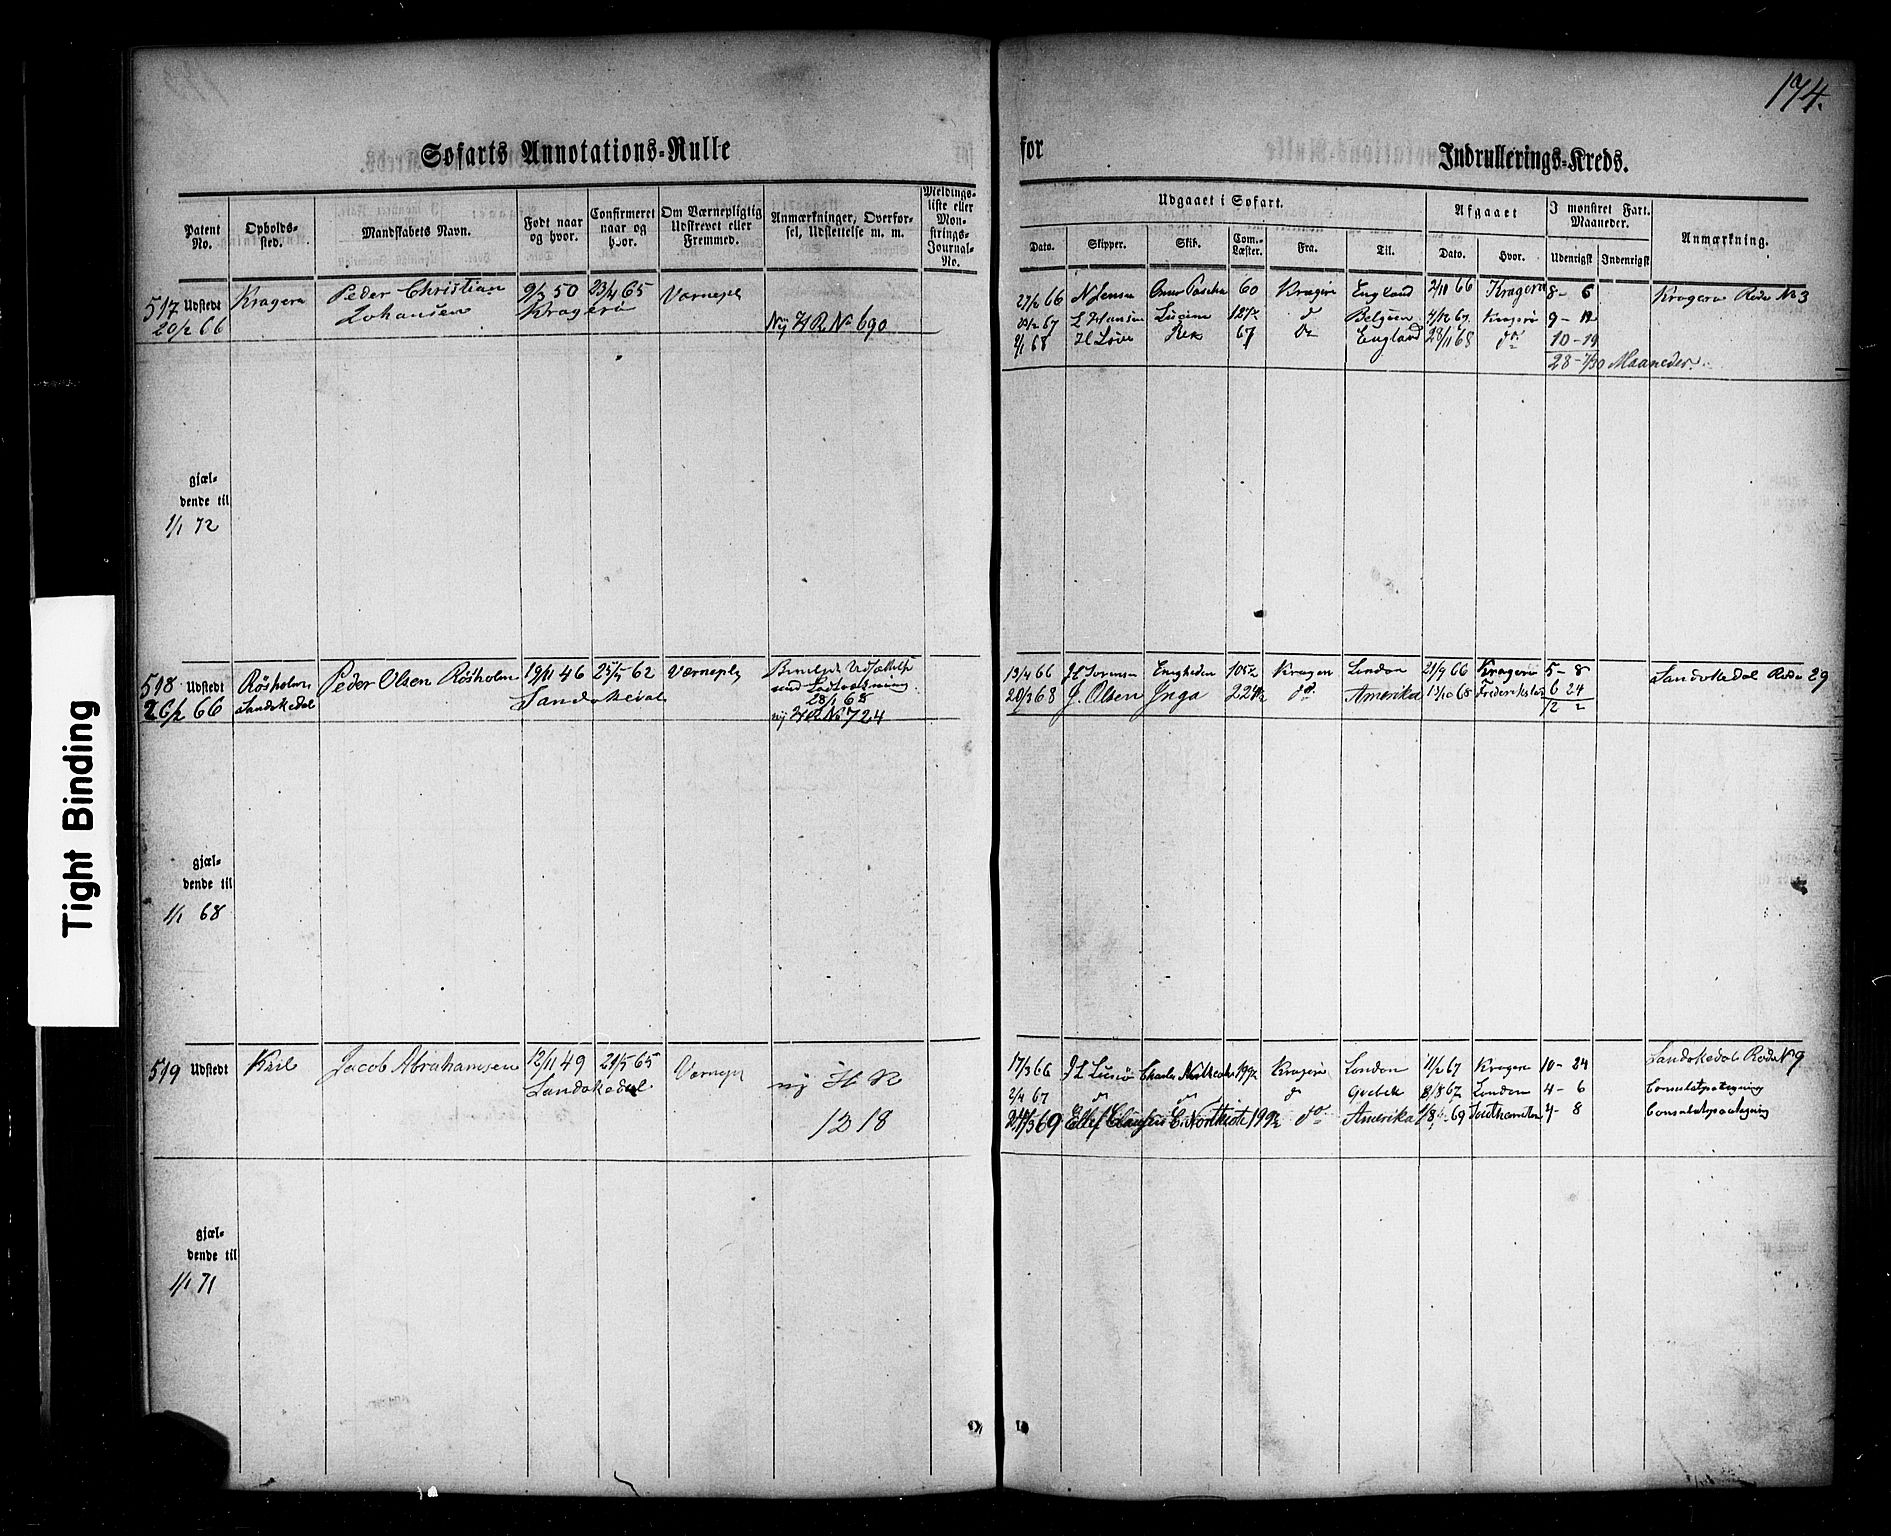 174.
Søfarts Annotations-Rulle
for Indrullerings-Kreds.
Patent No.
Opholds-sted.
Mandskabets Navn.
Født naar og hvor.
Confirmeret naar og hvor.
Om Værnepligtig Udskrevet eller Fremmed.
Anmærkninger, Overførsel, Udslettelse m. m.
Meldings-liste eller Mon-strings-Journal-No.
Udgaaet i Søfart.
Dato.
Skipper.
Skib.
Com.-Læster.
Fra.
Til.
Afgaaet
Dato.
Hvor.
I mønstret Fart. Maaneder.
Udenrigst
Indenrigst
Anmærkning.
517 Udstedt 20/2 66
Kragerø
Peder Christian Johansen
9/2 50 23/4 65
Kragerø
Værnepl
Nÿ H R No 690
27/2 66 N Jensen Omer Pascha 60 Kragerø England 2/10 66 Kragerø 8 - 6 Kragerø Rode No 3
67 L Hansen Lucine 127½ d Belgien 67 Kragerø 9 - 12
68 H Love Rex 67 Do England 28/11 68 do 10 - 19
28 - 7/30 Maaneder.
gjæl-
dende til
1/1 72
518 Udstedt 26/2 66
Røsholm Sandøkedal
Peder Olsen Røsholm
19/11 46 25/5 62
Sandøkedal
Værnepl
28/1 68
nÿ H R No 724
13/4 66 Enigheden 105½ Kragerø London 21/9 66 Kragerø 5 - 8 Sandøkedal Rode 29
20/3 68 J. Olsen Inga 224½ do Amerika 13/10 68 Frederikstad 6 24
12 2
gjæl-
dende til
1/1 68
519 Udstedt
Kiil
Jacob Abrahamsen
12/11 49 21/5 65
Sandøkedal
Værnepl
nÿ H R
1218
17/3 66 Charles Northcote 199½ Kragerø London 11/2 67 Kragerø 10 - 24 Sandøkedal Rode No 9
2/4 67 do do d Qvebek 8/8 67 London 4 - 6 Consulatpategning
3 69 Ellef Clausen C. Northcote 199½ do Amerika 69 4 - 8 Consulatspaategning
gjæl-
dende til
1/1 71
Tight Binding